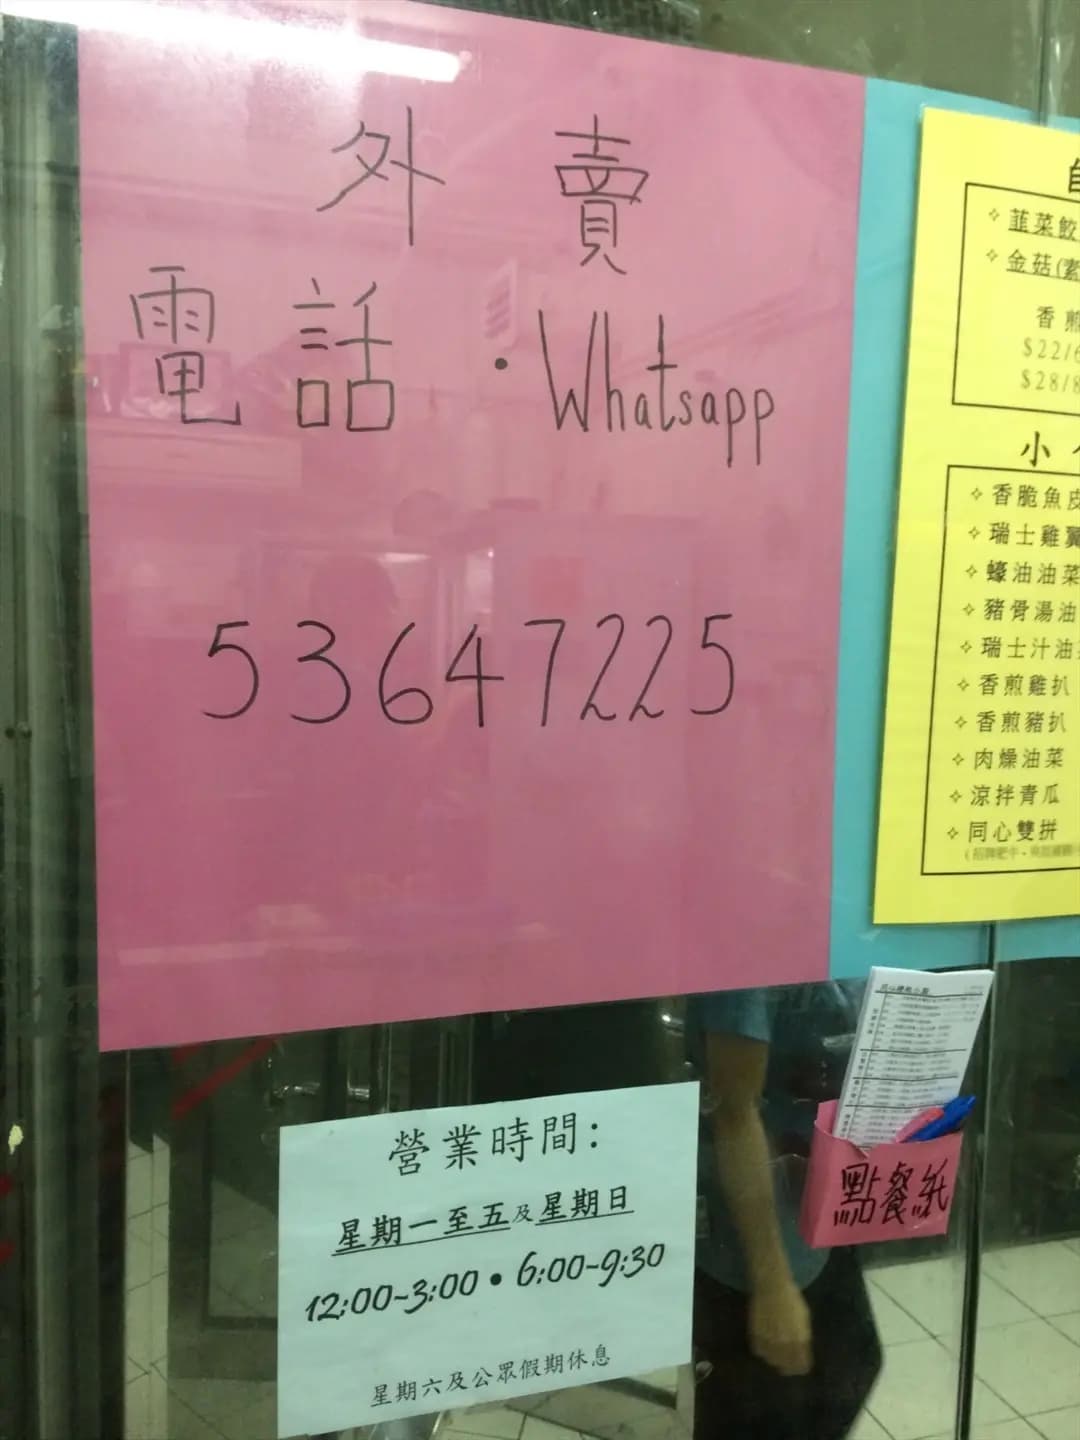 外賣
電話・Whatsapp
53647225
營業時間：
星期一至五及星期日
12:00~3:00 • 6:00~9:30
星期六及公眾假期休息
自
✧ 韮菜餃
✧ 金菇(素
香煎
$22/6
$28/8
小
✧ 香脆魚皮
✧ 瑞士雞翼
✧ 蠔油油菜
✧ 豬骨湯油
✧ 瑞士汁油
✧ 香煎雞扒
✧ 香煎豬扒
✧ 肉燥油菜
✧ 涼拌青瓜
✧ 同心雙拼
點餐紙